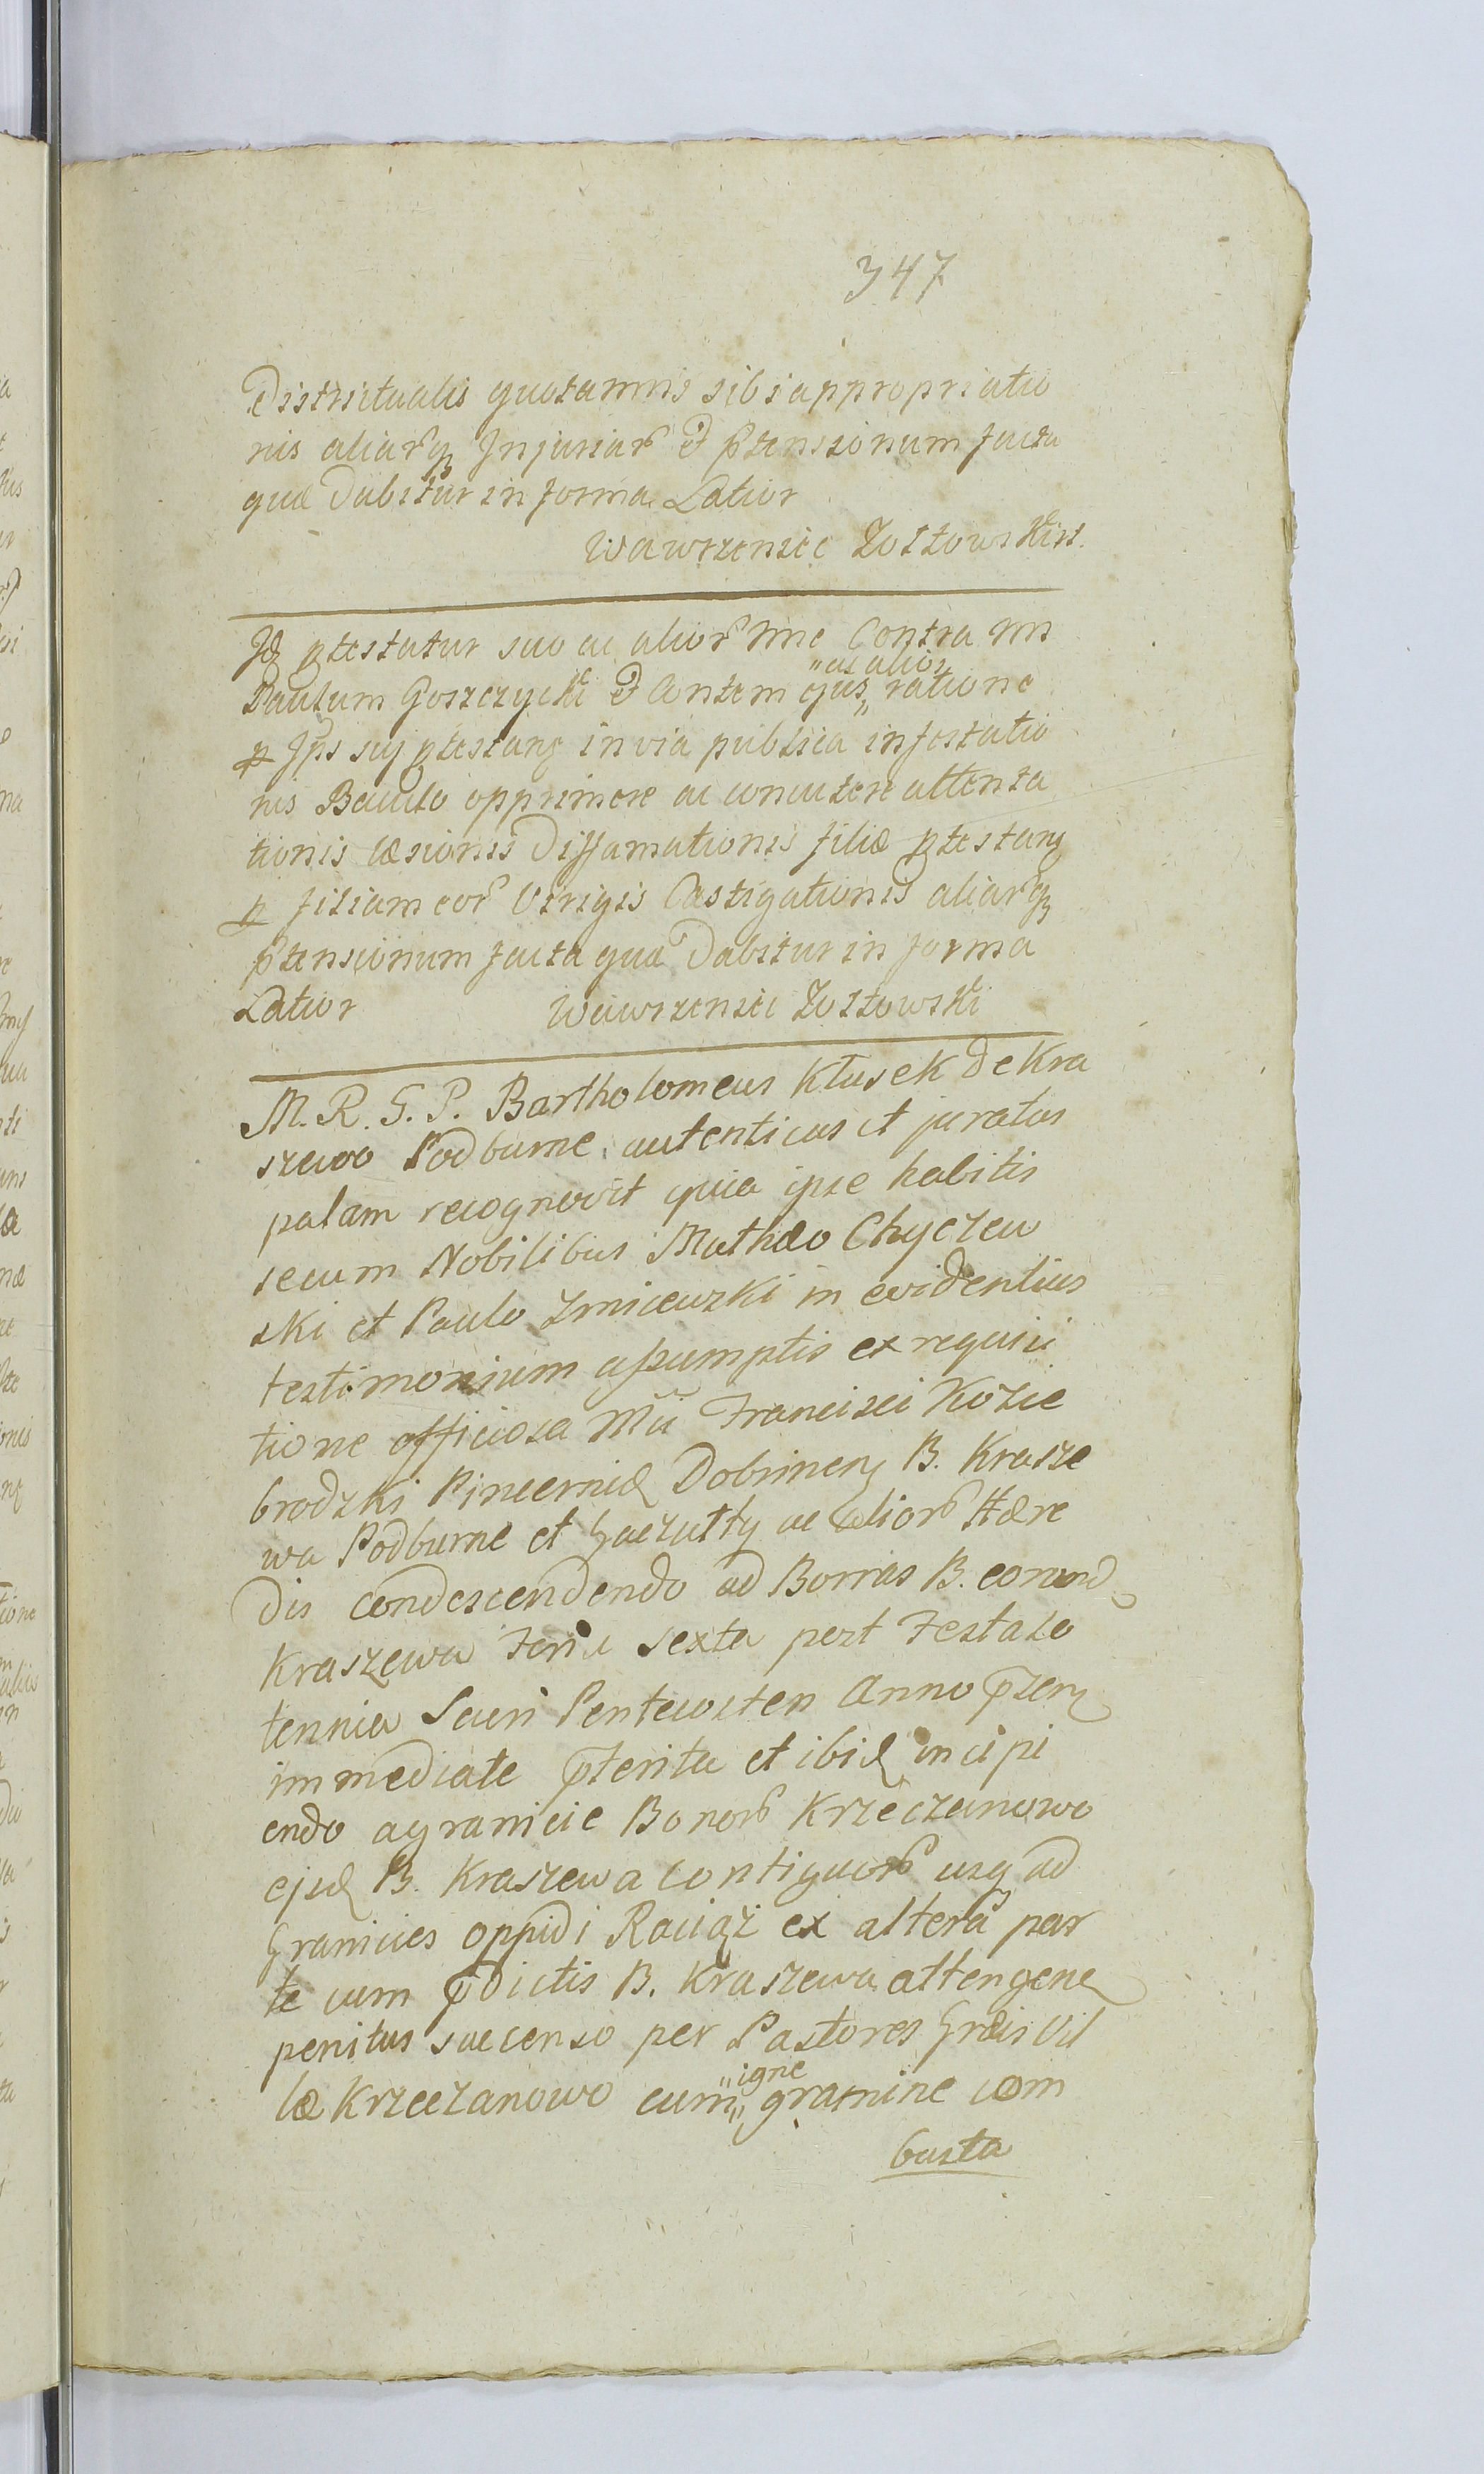 347
Districtualis quotannis sibi appropriatio
nis aliarq Injuriar et ptensionum facta
quæ Dabitur in forma Latior
Wawrzeniec Zołtowski
Id ptestatur suo ac alior nne Contra nn
Paulum Goszczycki et Contem ejus "ac alior" ratione
p Ips sui ptestang in via publica infestatio
nis Baculo opprimere ac concutere attenta
tionis læsionis Diffamationis filiæ ptestang
p filiam eor Virigis Castigationis aliarq
ptensionum facta quæ Dabitur in forma
Latior Wawrzeniec Zołtowski
M. R. G. P. Bartholomeus Kłusek de Kra
szewo Podburne autenticus et juratus
palam recognovit quia ipse habitis
secum Nobilibus Mathæo Chyczew
ski et Paulo Zmiiewzki in evidentius
testimonium assumptis ex requisi
tione officiosa Mci Francisci Kozie
brodzki Pincernid Dobrinen B. Krasze
wa Podburne et Gaczułty ac alior Hære
dis condescendendo ad Borras B. eorund
Kraszewa Feria Sexta post Festa so
lennia Sacri Pentecosten Anno pzen
immediate pterita et ibid incipi
endo a granicie Bonor Krzeczanowo
ejusd B. Kraszewa contiguor usq ad
Granicies oppidi Raciąż ex altera par
te cum pdictis B. Kraszewa attengene
penitus succenso per Pastores Grdis Vil
læ Krzeczanowo cum "igne" gramine com
busta